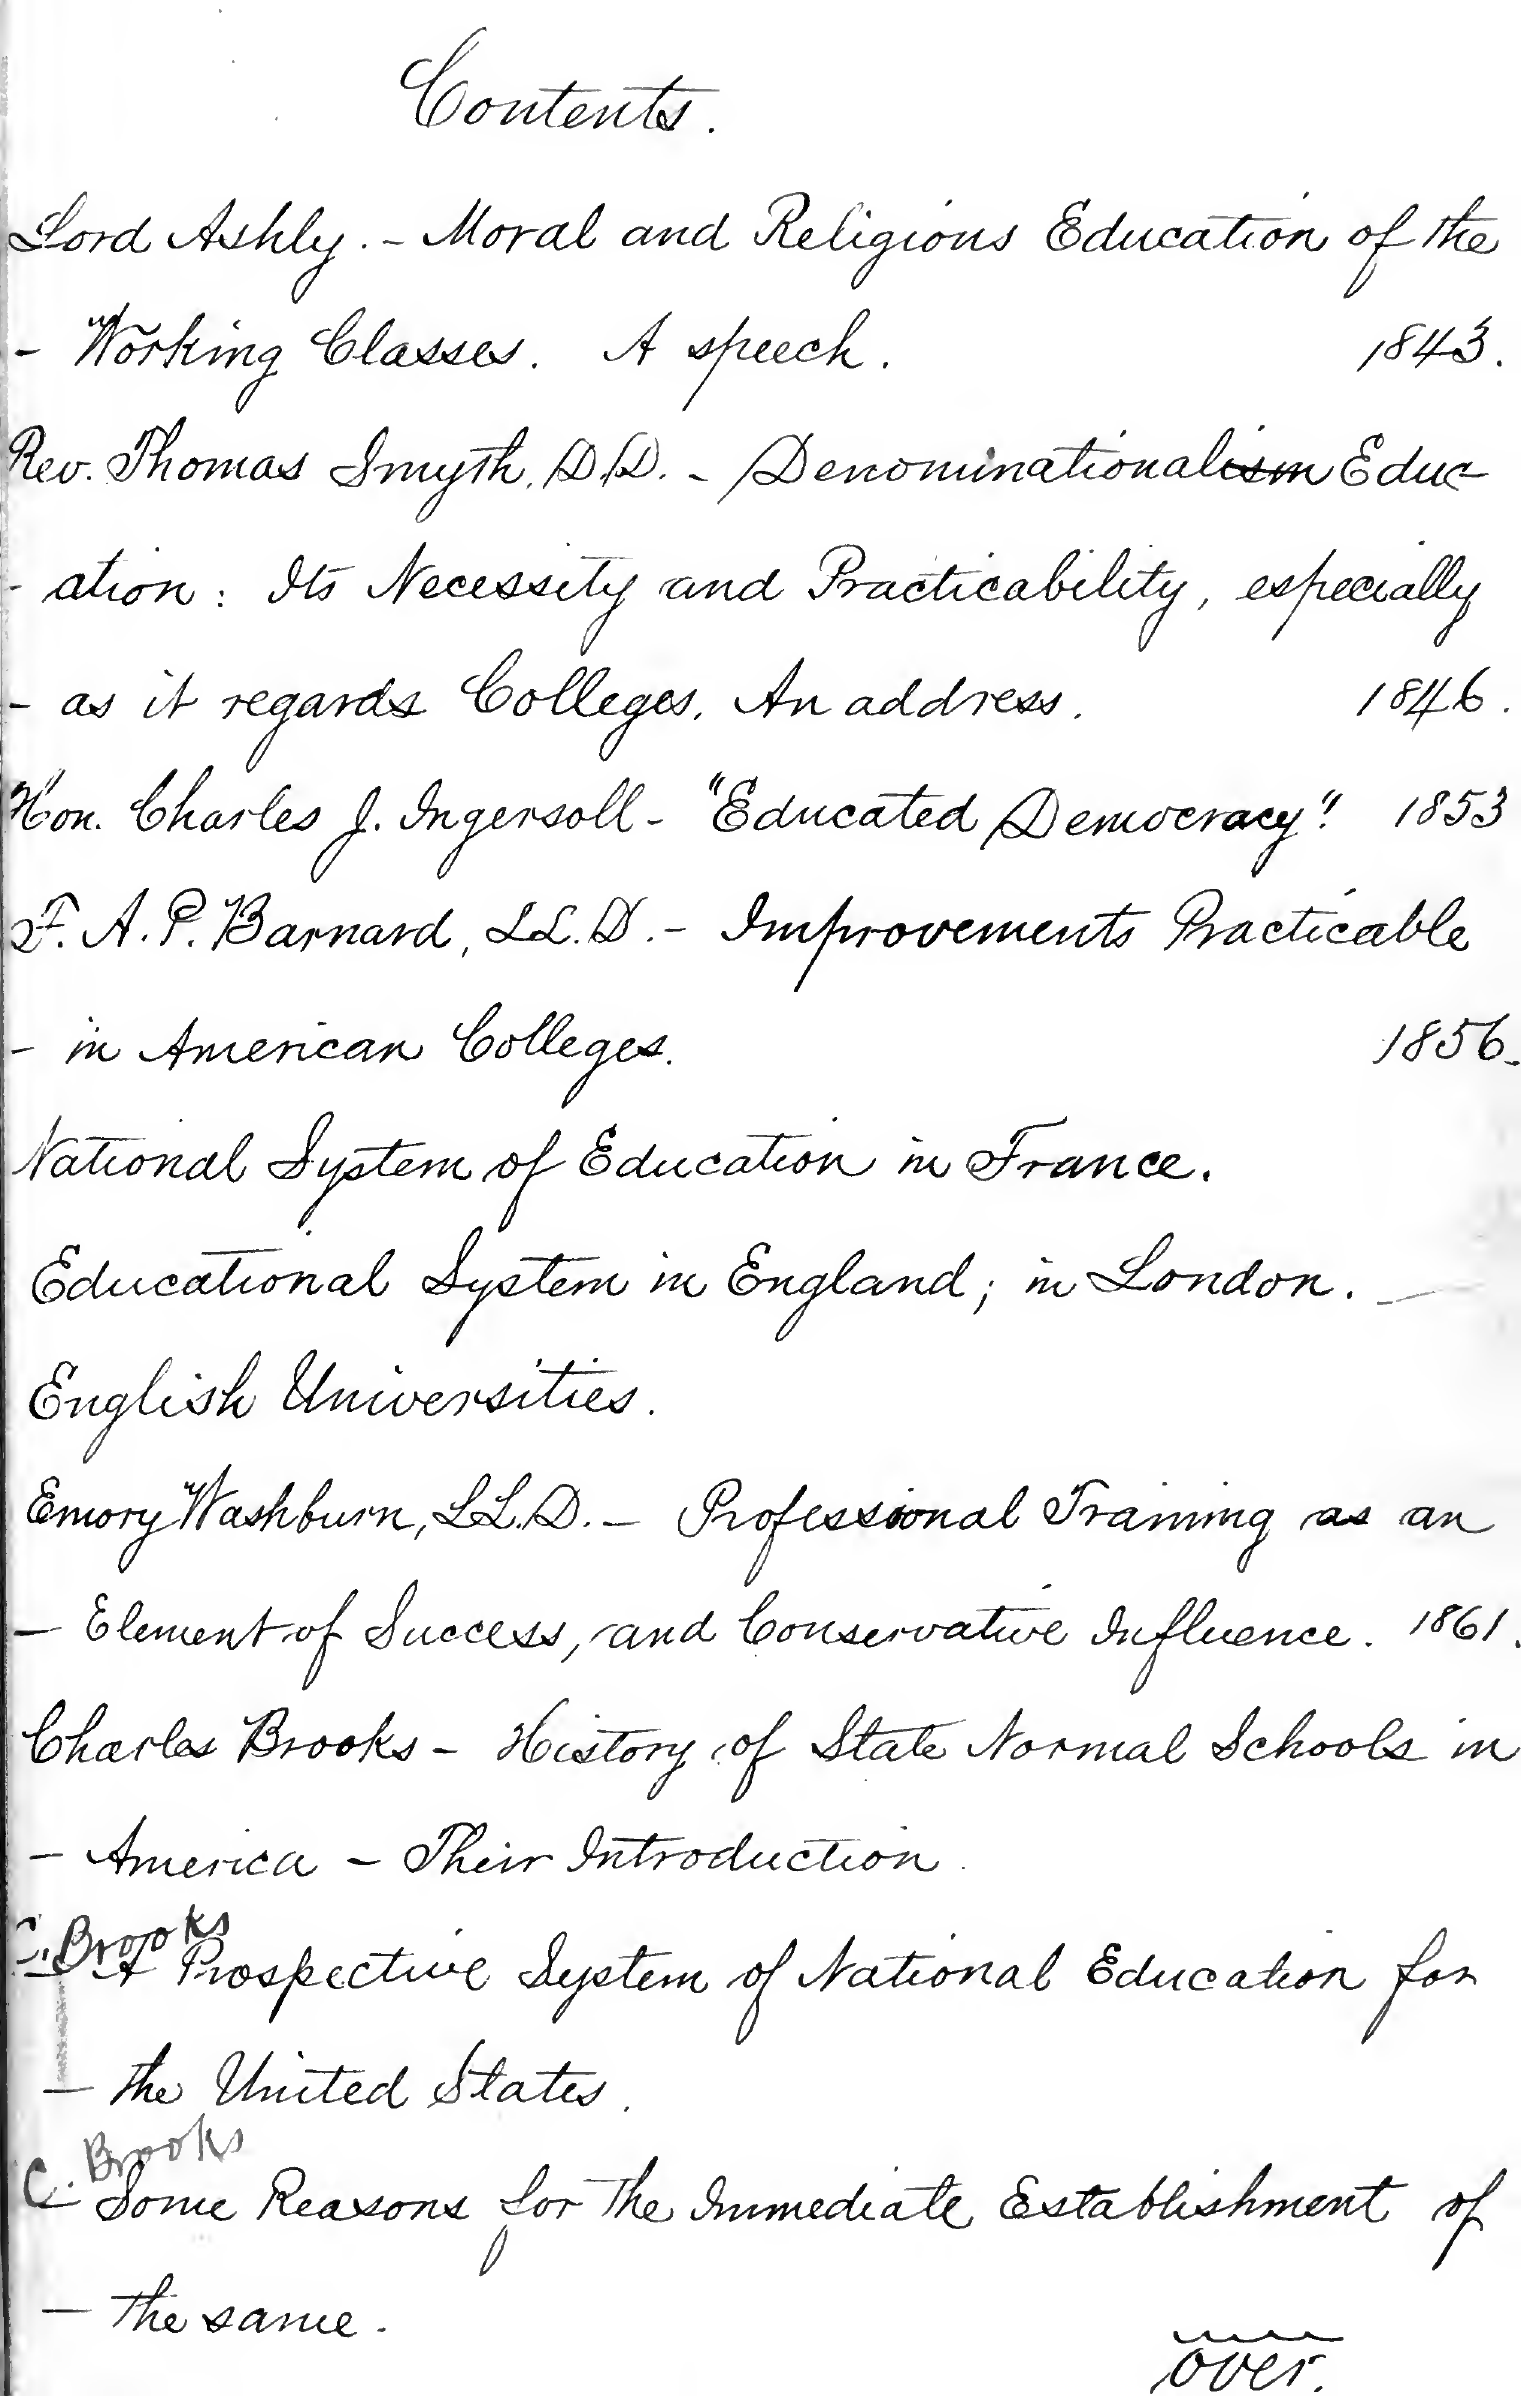 Contents.
Lord Ashly. - Moral and Religious Education of the
- Working Classes. A speech. 1843.
Rev. Thomas Smyth, D.D. - Denominationalism Educ-
- ation: Its Necessity and Practicability, especially
- as it regards Colleges. An address. 1846.
Hon. Charles J. Ingersoll - "Educated Democracy". 1853
F. A. P. Barnard, LL.D. - Improvements Practicable
- in American Colleges. 1856.
National System of Education in France.
Educational System in England; in London. -
English Universities.
Emory Washburn, LL.D. - Professional Training as an
- Element of Success, and Conservative Influence. 1861.
Charles Brooks - History of State Normal Schools in
- America - Their Introduction.
C. Brooks
A Prospective System of National Education for
- the United States.
C. Brooks
Some Reasons for the Immediate Establishment of
- the same.
over.